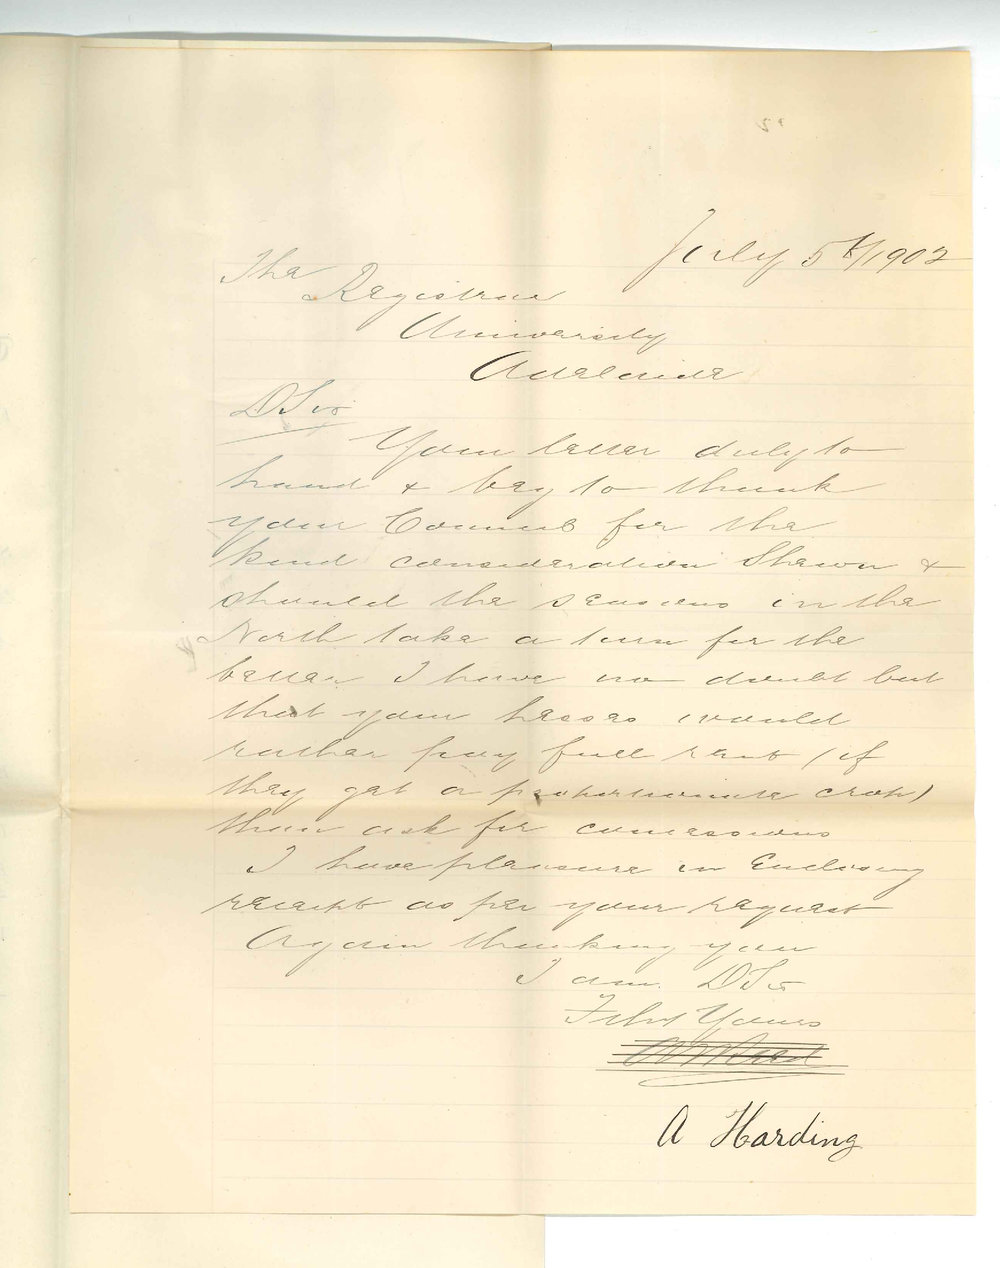 July 5th/1902
The
Registrar
University
Adelaide
D Sir
Your letter duly to
hand & beg to thank
your Council for the
kind consideration Shewn &
should the seasons in the
North take a turn for the
better I have no doubt but
that your lessees would
rather pay full rent (if
they get a proportionate crop)
than ask for concessions
I have pleasure in Enclosing
receipt as per your request
Again thanking you
I am D Sir
Yours
A Harding